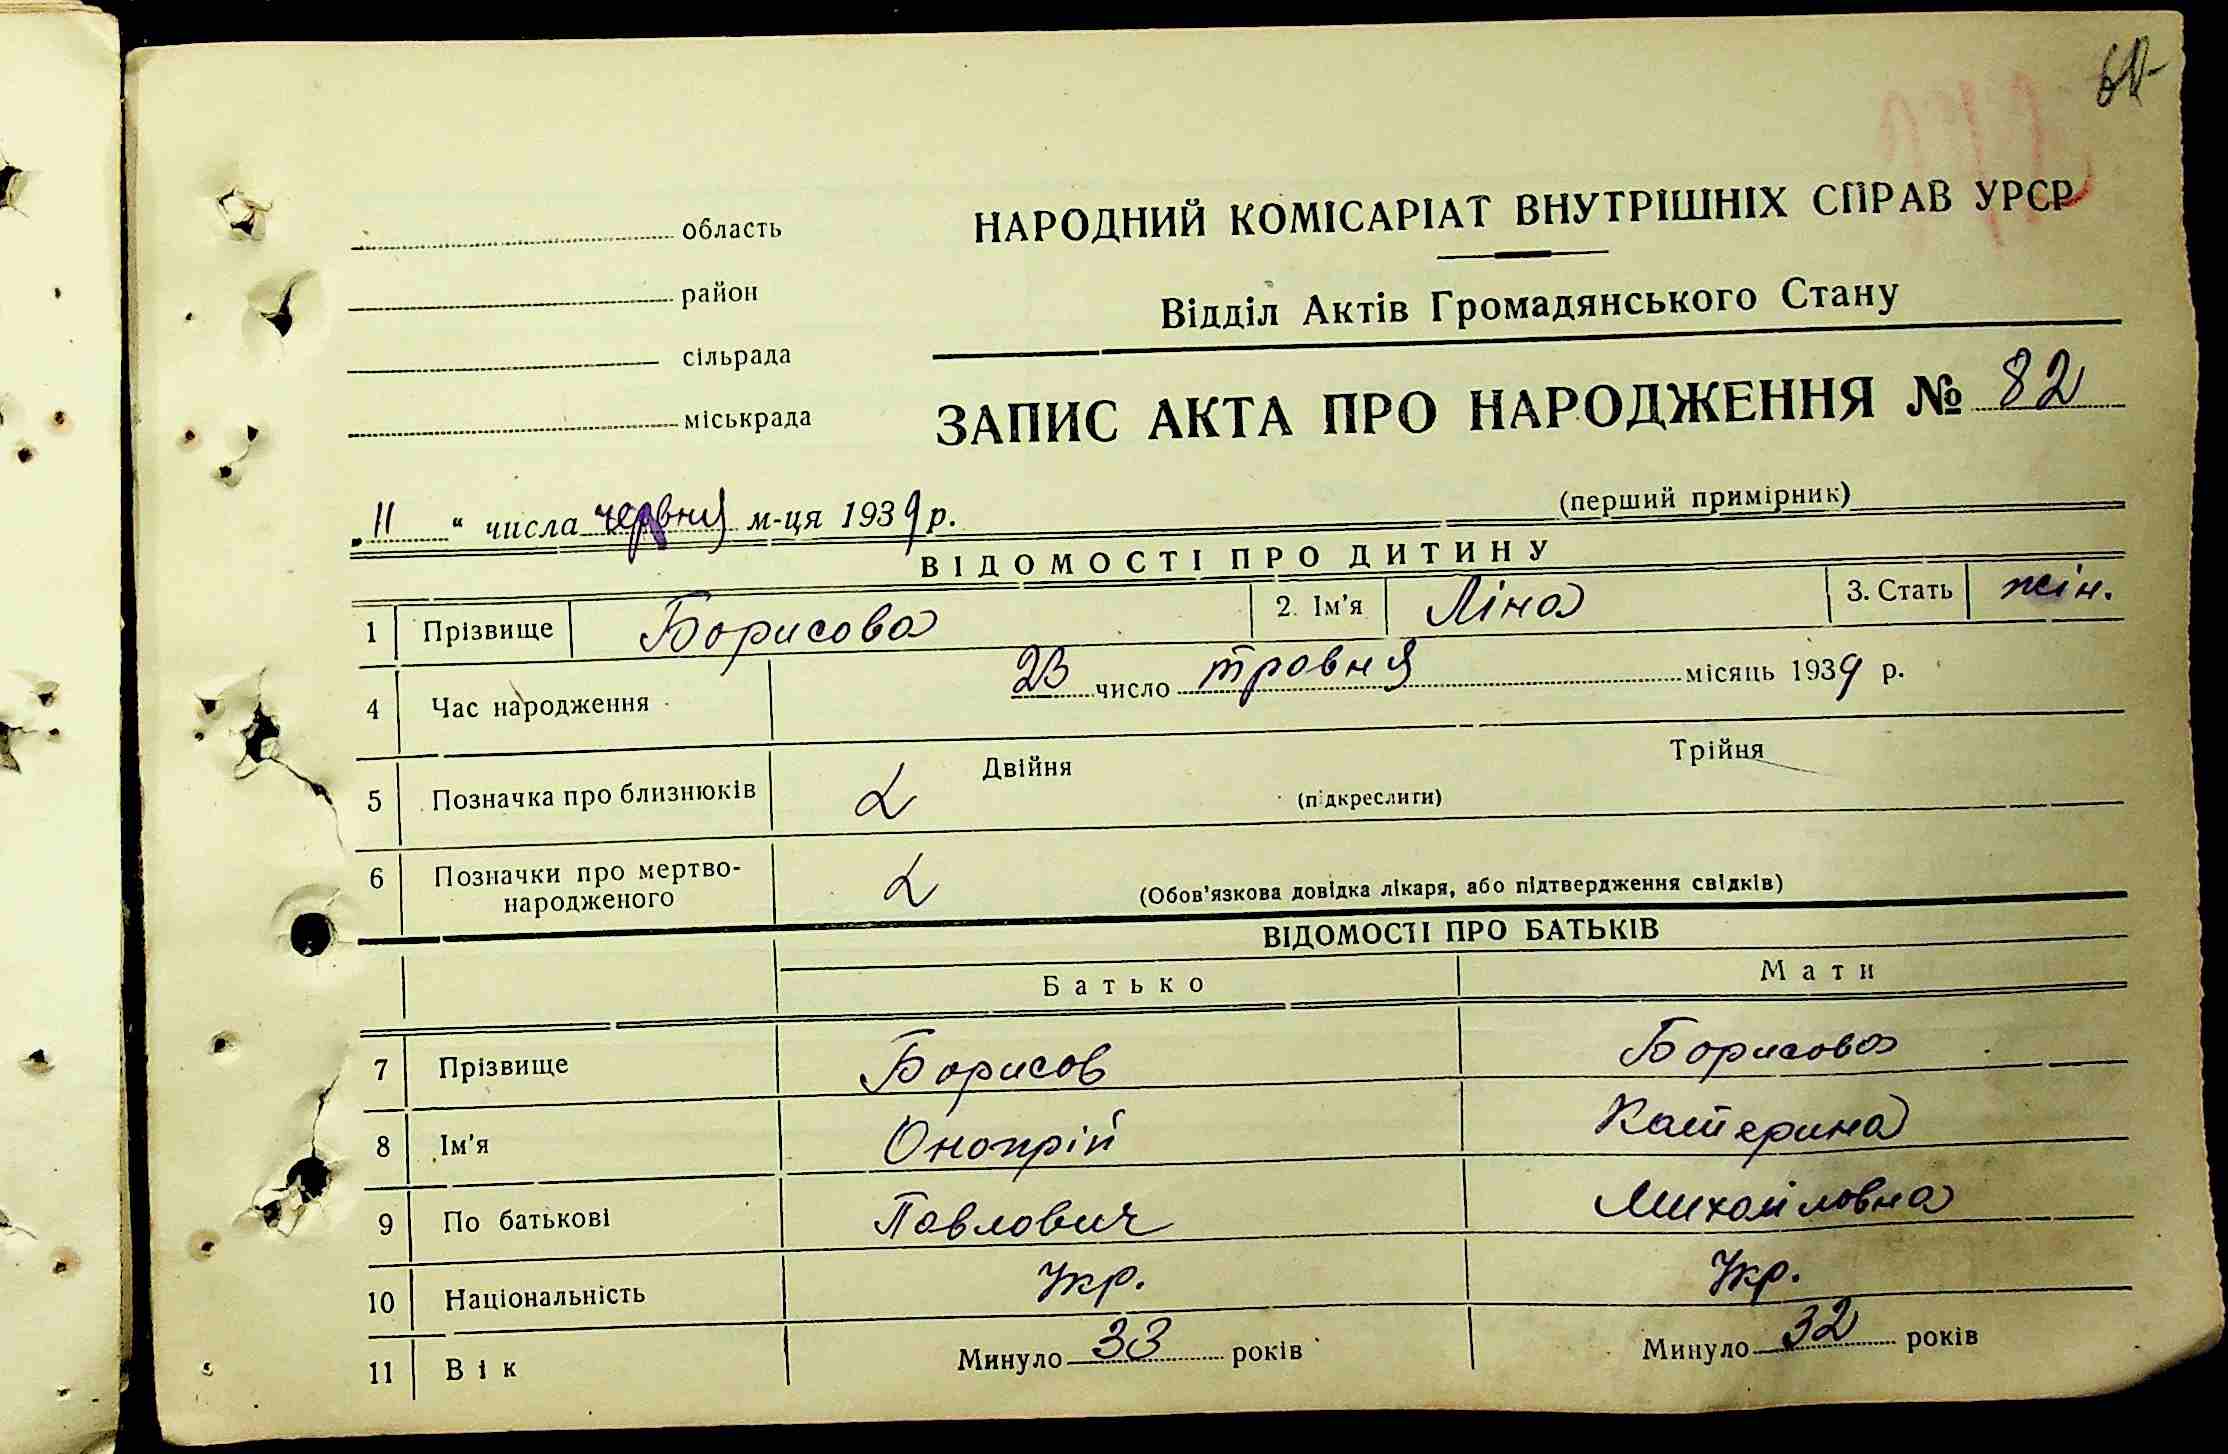 область
НАРОДНИЙ КОМІСАРІАТ ВНУТРІШНІХ СПРАВ УРСР
район
Відділ Актів Громадянського Стану
сільрада
міськрада
ЗАПИС АКТА ПРО НАРОДЖЕННЯ № 82
„ 11 “ числа червня м-ця 1939 р.
(перший примірник)
ВІДОМОСТІ ПРО ДИТИНУ
1 Прізвище Борисова 2. Ім'я Ліна 3. Стать жін.
4 Час народження 23 число травня місяць 1939 р.
5 Позначка про близнюків Двійня Трійня
(підкреслити)
6 Позначки про мертво-
народженого (Обов'язкова довідка лікаря, або підтвердження свідків)
ВІДОМОСТІ ПРО БАТЬКІВ
Батько Мати
7 Прізвище Борисов Борисова
8 Ім'я Онопрій Катерина
9 По батькові Павлович Михайловна
10 Національність Укр. Укр.
11 Вік Минуло 33 років Минуло 32 років